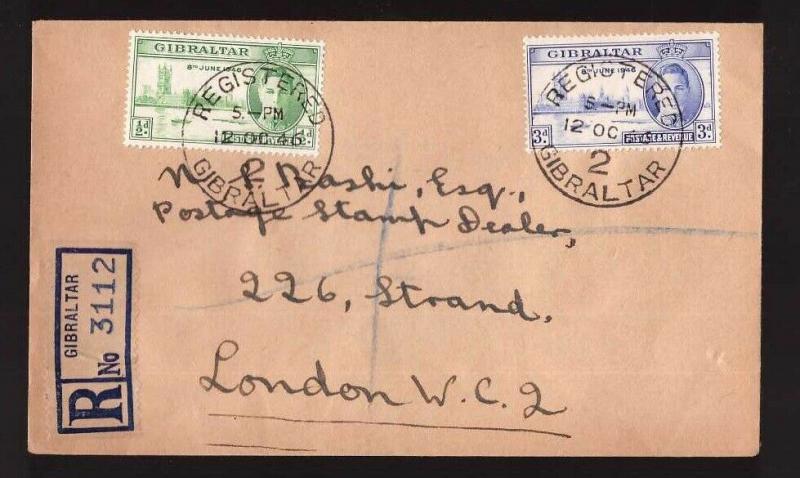 GIBRALTAR
8TH JUNE 1946
½d ½d
POSTAGE & REVENUE
REGISTERED
5 - PM
12 OC 46
2
GIBRALTAR
GIBRALTAR
8TH JUNE 1946
3d POSTAGE & REVENUE 3d
REGISTERED
5 - PM
12 OC
2
GIBRALTAR
N. P. Bashi, Esq.,
Postage Stamp Dealer,
226, Strand,
London W.C.2
R
GIBRALTAR
No 3112